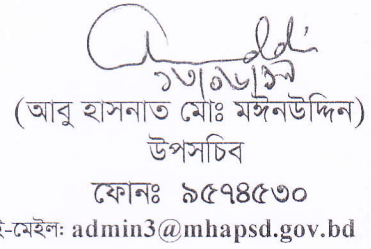 ১৩/০৬/১৯
(আবু হাসনাত মোঃ মঈনউদ্দিন)
উপসচিব
ফোনঃ ৯৫৭৪৫৩০
ই-মেইলঃ admin3@mhapsd.gov.bd